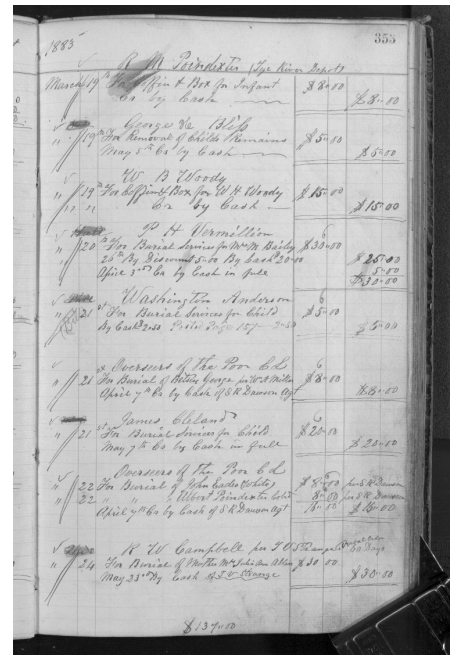 1885
353
R M Poindexter (Tye River Depot)
March 19th For Coffin & Box for Infant $8.00
Cr by Cash $8.00
George Bliss
" 19th For Removal of Childs Remains $5.00
May 5th Cr by Cash $5.00
W B Woody
" 19th For Coffin & Box for W H Woody $15.00
" " Cr by Cash $15.00
P H Vermillion
" 20th For Burial Services for Mrs M Bailey $30.00
26th By Discount 5.00 By Cash 20.00 $25.00
5.00
April 3rd Cr by Cash in full $30.00
Washington Anderson
" 21st For Burial Services for Child $5.00
By Cash 2.50 Page 157 2.50 $5.00
Overseers of the Poor C L
" 21st For Burial of George per W A Miller $8.00
April 7th Cr by Cash of S R Dawson Agt $8.00
James Cleland
" 21st For Burial Services for Child $20.00
May 7th Cr by Cash in full $20.00
Overseers of the Poor C L
" 22 For Burial of John (White) $8.00 per S R Dawson
" 22 " " " Albert Poindexter Col'd 8.00 per S R Dawson
April 7th Cr by Cash of S R Dawson Agt 16.00 $16.00
R W Campbell per J V Strange
60 Days
" 24 For Burial of Mother Mrs Julia Ann $30.00
May 23rd By Cash of J V Strange $30.00
$137.00